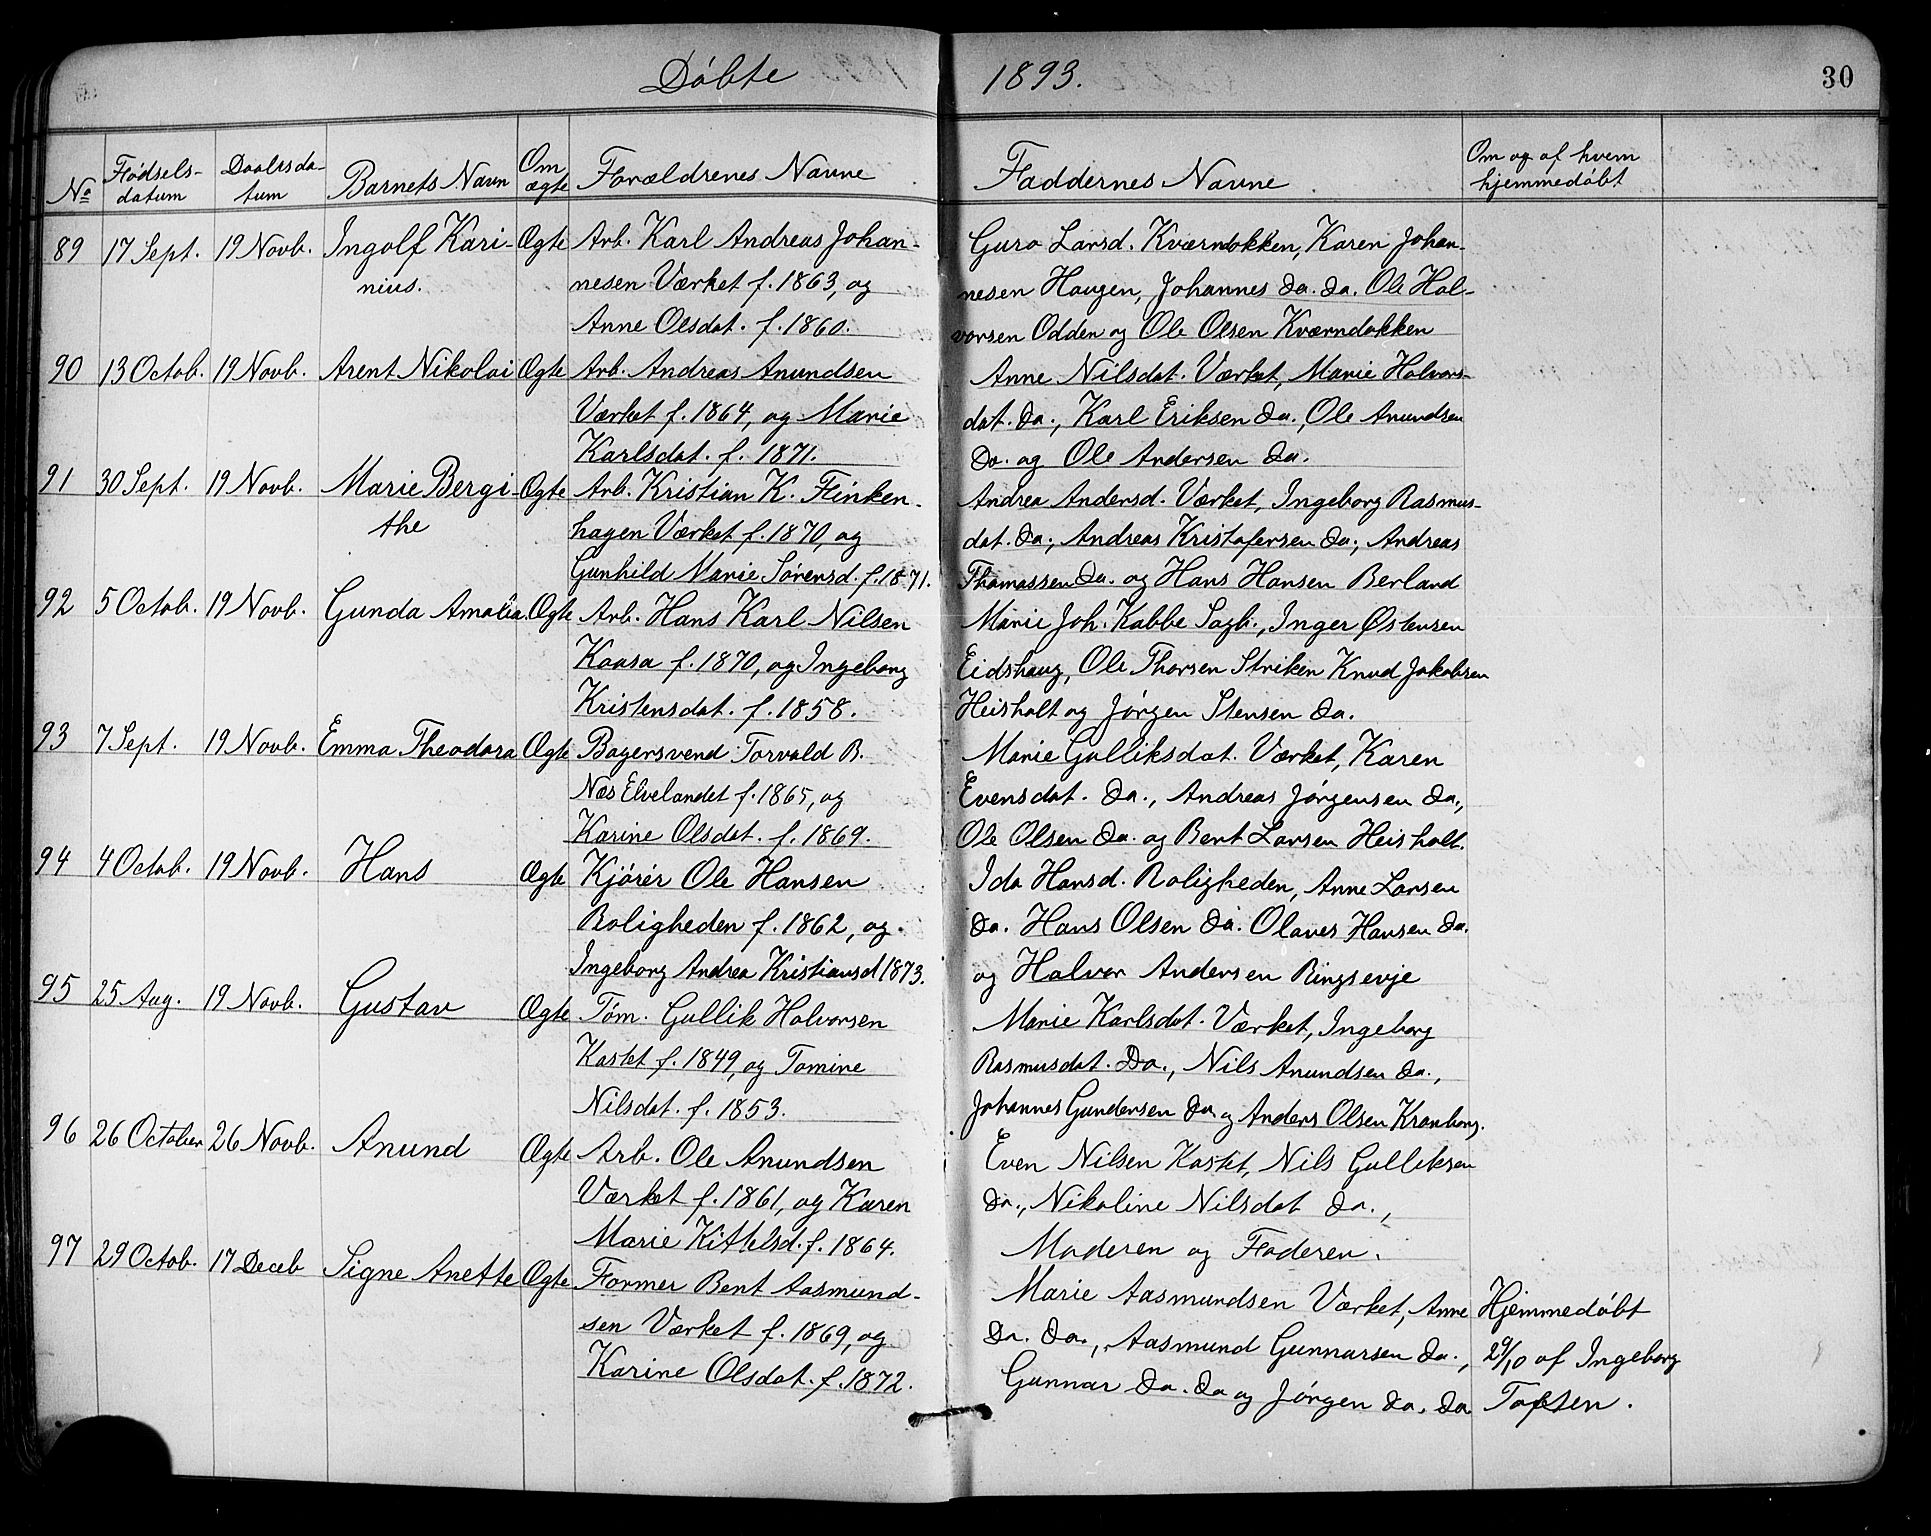 Döbte 1893. 30
No Födsels-datum Daabsda-tum Barnets Navn Om ægte Forældrenes Navne Faddernes Navne Om og af hvem hjemmedöbt
89 17 Sept. 19 Novb. Ingolf Kari- Ægte Arb. Karl Andreas Johan- Guro Larsd. Kværndokken, Karen Johan-
nius. nesen Værket f. 1863, og nesen Haugen, Johannes Do. Do. Ole Hal-
Anne Olsdat. f. 1860. vorsen Odden og Ole Olsen Kværndokken
90 13 Octob. 19 Novb. Arent Nikolai Ægte Arb. Andreas Anundsen Anne Nilsdat. Værket, Marie Halvors-
Værket f. 1864, og Marie dat. Do., Karl Eriksen Do., Ole Anundsen
Karlsdat. f. 1871. Do. og Ole Andersen Do.
91 30 Sept. 19 Novb. Marie Bergi- Ægte Arb. Kristian K. Finken- Andrea Andersd. Værket, Ingeborg Rasmus-
the hagen Værket f. 1870, og dat. Do., Andreas Kristofersen Do., Andreas
Gunhild Marie Sörensd. f. 1871. Thomassen Do. og Hans Hansen Berland
92 5 Octob. 19 Novb. Gunda Amalia. Ægte Arb. Hans Karl Nilsen Marie Joh. Kabbe Sagb., Inger Østensen
Kaasa f. 1870, og Ingeborg Eidshaug, Ole Thorsen Striken Knud Jakobsen
Kristensdat. f. 1858. Heisholt og Jörgen Stensen Do.
93 7 Sept. 19 Novb. Emma Theodora Ægte Bagersvend Torvald B. Marie Gulliksdat. Værket, Karen
Næs Elvelandet f. 1865, og Evensdat. Do., Andreas Jörgensen Do.,
Karine Olsdat. f. 1869. Ole Olsen Do. og Bent Larsen Heisholt.
94 4 Octob. 19 Novb. Hans Ægte Kjörer Ole Hansen Ida Hansd. Roligheden, Anne Larsen
Roligheden f. 1862, og Do. Hans Olsen Do. Olaves Hansen Do.
Ingeborg Andrea Kristiansd 1873. og Halvor Andersen Ringsevje
95 25 Aug. 19 Novb. Gustav Ægte Töm. Gullik Halvorsen Marie Karlsdat. Værket, Ingeborg
Kastet f. 1849, og Tomine Rasmusdat. Do., Nils Anundsen Do.,
Nilsdat. f. 1853. Johannes Gundersen Do. og Anders Olsen Kronborg.
96 26 October 26 Novb. Anund Ægte Arb. Ole Anundsen Even Nilsen Kastet, Nils Gulliksen
Værket f. 1861, og Karen Do., Nikoline Nilsdat Do.,
Marie Kittelsd. f. 1864. Moderen og Faderen.
97 29 Octob. 17 Deceb Signe Anette Ægte Former Bent Aasmund- Marie Aasmundsen Værket, Anne Hjemmedöbt
sen Værket f. 1869, og Do. Do., Aasmund Gunnarsen Do., 29/10 af Ingeborg
Karine Olsdat. f. 1872. Gunnar Do. Do og Jörgen Do. Do Toftsen.